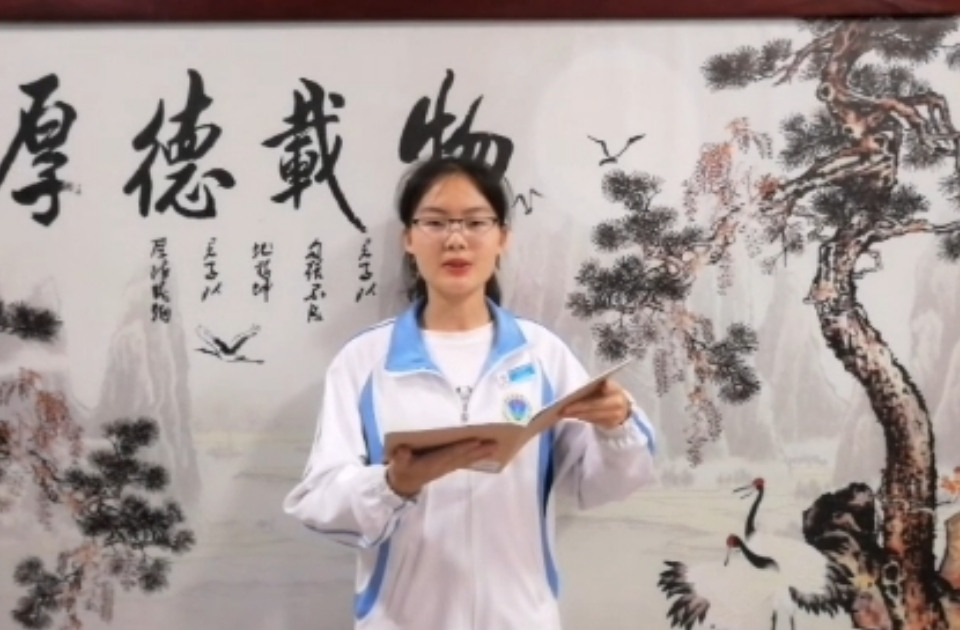 厚德載物
君子以
自强不息
地势坤
君子以
厚德载物